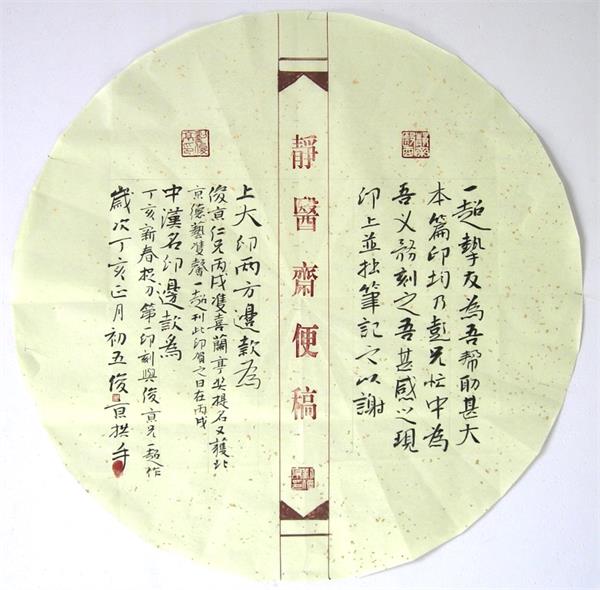 一超摯友為吾幫助甚大
本篇印均乃彭兄忙中為
吾义務刻之吾甚感之現
印上並拙筆記之以謝
靜醫齋便稿
上大印兩方邊款為
俊京仁兄丙戌雙喜蘭亭奖提名又獲北
京德藝雙馨一超刊此印賀之日在丙戌
中漢名印邊款為
丁亥新春捉刀第一印刻與俊京兄一超作
歲次丁亥正月初五俊京拱手